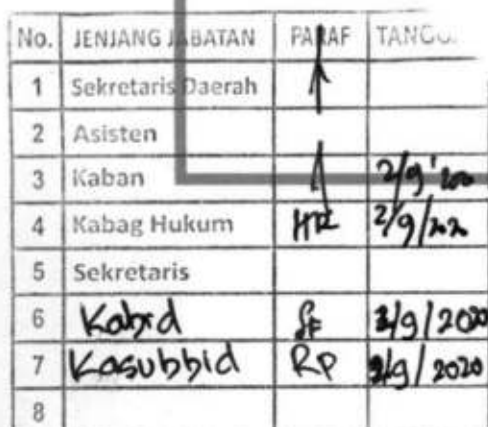 No. JENJANG JABATAN PARAF
1 Sekretaris Daerah
2 Asisten
3 Kaban 2/9'
4 Kabag Hukum 2/9/
5 Sekretaris
6 Kabid 2/9/2020
7 Kasubbid RP 2/9/2020
8